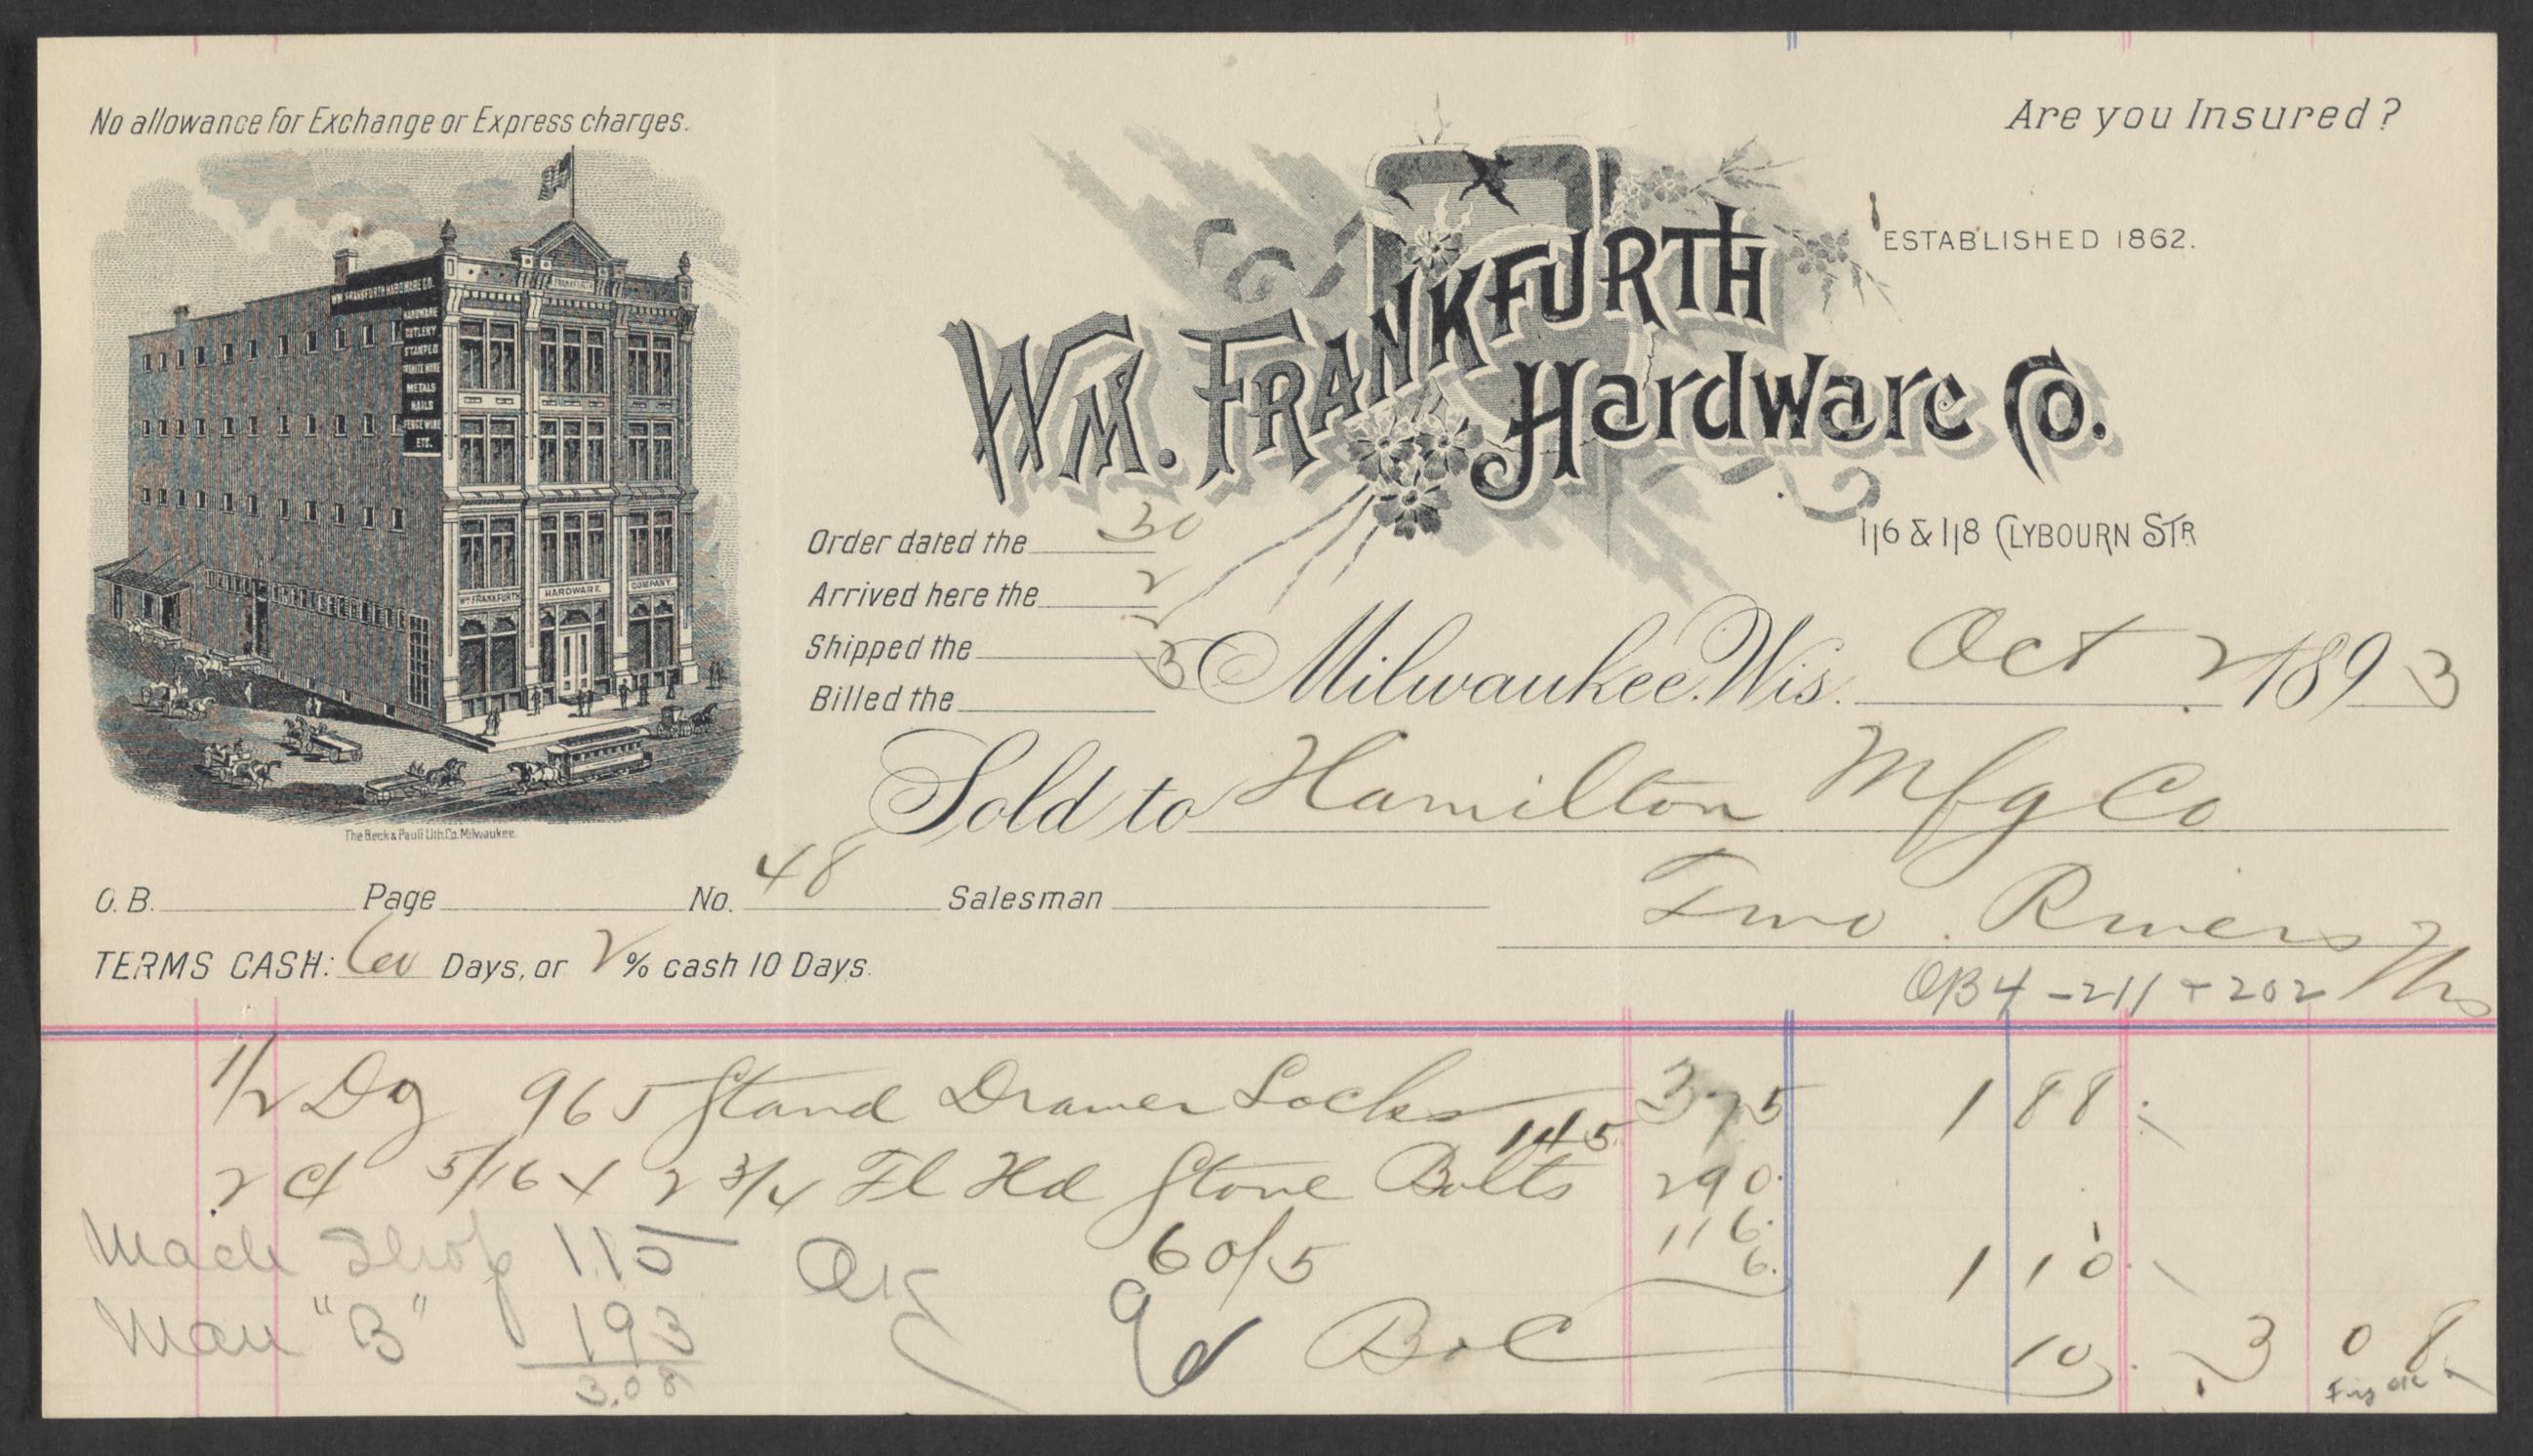 No allowance for Exchange or Express charges.
Are you Insured?
ESTABLISHED 1862.
WM. FRANKFURTH
Hardware Co.
116 & 118 CLYBOURN STR
WM FRANKFURTH HARDWARE CO.
HARDWARE
CUTLERY
STAMPED
GRANITE WARE
METALS
NAILS
FENCE WIRE
ETC.
WM FRANKFURTH HARDWARE COMPANY
The Beck & Pauli Lith. Co. Milwaukee.
Order dated the 30
Arrived here the 2
Shipped the 2
Billed the 3
Milwaukee. Wis. Oct 2 1893
Sold to Hamilton Mfg Co
Two Rivers Wis
O.B. Page No. 48 Salesman
TERMS CASH: 60 Days, or 2 % cash 10 Days.
OB4 - 211 + 202
1/2 Dz 965 Stand Drawer Locks 375 1 88
145
2 C 5/16 x 2 3/4 Fl Hd Stove Bolts 290
116
Mach Shop 115 OK 60/5 6 1 10
Man "B" 193 BxC 10 3 08
3.08
Fig ok